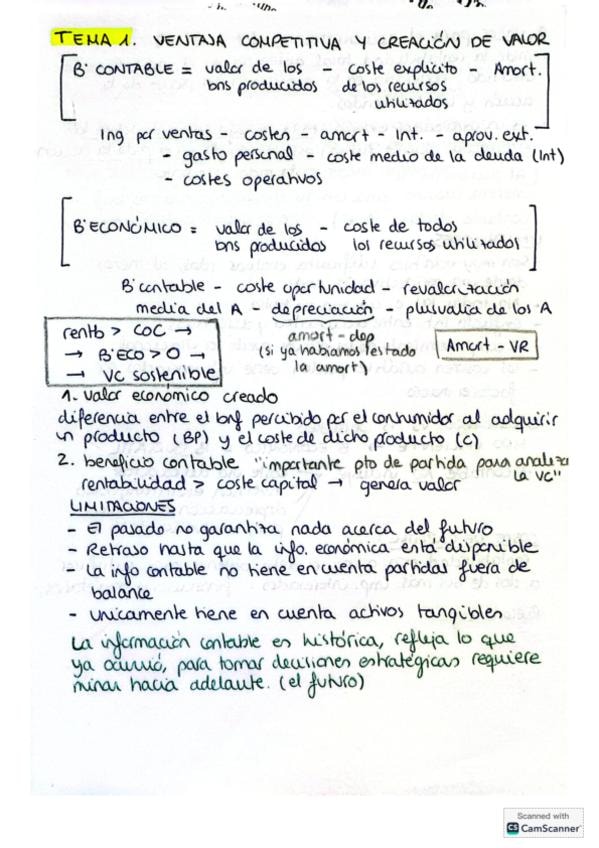 TEMA 1. VENTAJA COMPETITIVA Y CREACIÓN DE VALOR
Bº CONTABLE = valor de los - coste explícito - Amort.
bns producidos de los recursos
utilizados
Ing por ventas - costes - amort - Int. - aport. ext.
- gasto personal - coste medio de la deuda (Int)
- costes operativos
Bº ECONÓMICO = valor de los - coste de todos
bns producidos los recursos utilizados
Bº contable - coste oportunidad - revalorización
media del A - depreciación - plusvalía de los A
rentb > COC →
→ Bº ECO > 0 →
→ VC sostenible
amort - dep
(si ya habíamos restado
la amort)
Amort - VR
1. Valor económico creado
diferencia entre el bnf percibido por el consumidor al adquirir
un producto (BP) y el coste de dicho producto (c)
2. beneficio contable "importante pto de partida para analizar
la VC"
rentabilidad > coste capital → genera valor
LIMITACIONES
- El pasado no garantiza nada acerca del futuro
- Retraso hasta que la info. económica está disponible
- La info contable no tiene en cuenta partidas fuera de
balance
- unicamente tiene en cuenta activos tangibles
La información contable es histórica, refleja lo que
ya ocurrió, para tomar decisiones estratégicas requiere
mirar hacia adelante. (el futuro)
Scanned with
CS CamScanner